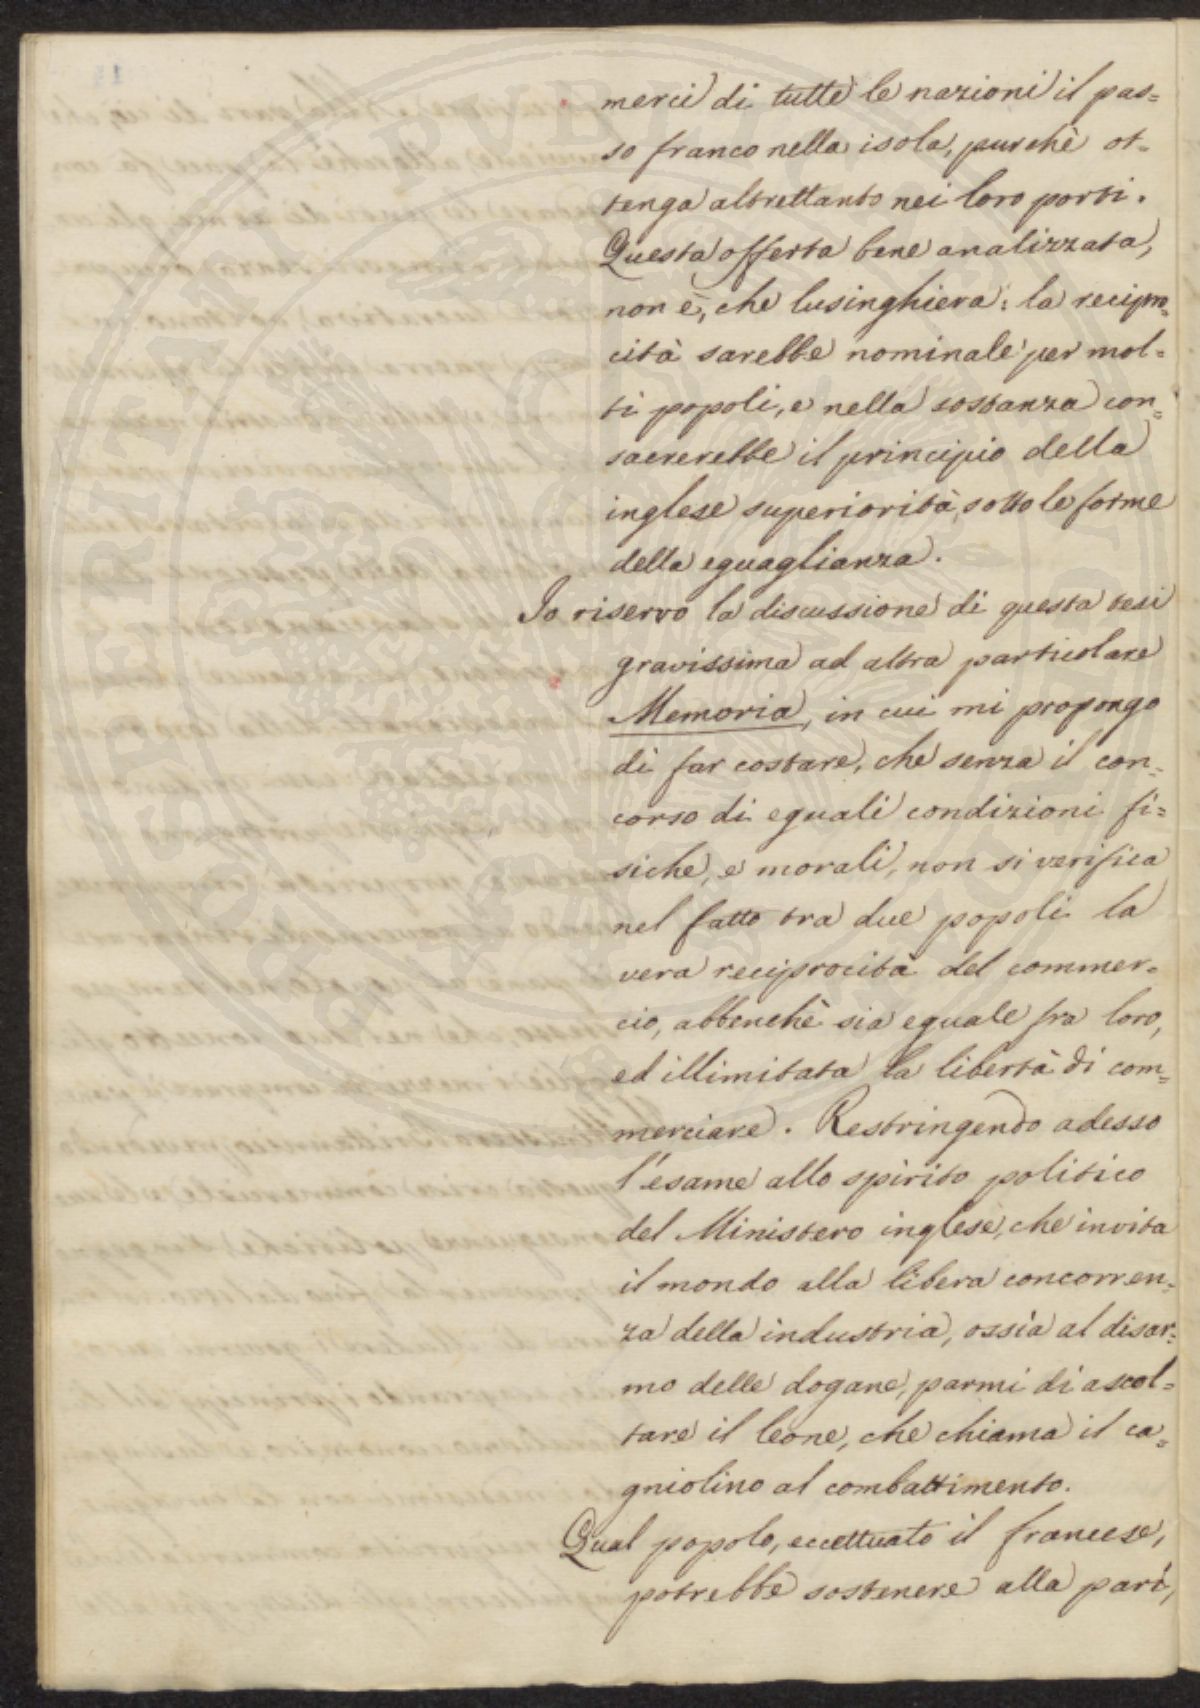 merci di tutte le nazioni il pas=
so franco nella isola, purchè ot=
tenga altrettanto nei loro porti.
Questa offerta bene analizzata,
non è, che lusinghiera: la recipro=
cità sarebbe nominale per mol=
ti popoli, e nella sostanza con=
sacrerebbe il principio della
inglese superiorità, sotto le forme
della eguaglianza.
Io riservo la discussione di questa tesi
gravissima ad altra particolare
Memoria, in cui mi propongo
di far costare, che senza il con=
corso di eguali condizioni fi=
siche, e morali, non si verifica
nel fatto tra due popoli la
vera reciprocità del commer=
cio, abbenchè sia eguale fra loro,
ed illimitata la libertà di com=
merciare. Restringendo adesso
l'esame allo spirito politico
del Ministero inglese, che invita
il mondo alla libera concorren=
za della industria, ossia al disar=
mo delle dogane, parmi di ascol=
tare il leone, che chiama il ca=
gniolino al combattimento.
Qual popolo, eccettuato il francese,
potrebbe sostenere alla pari,